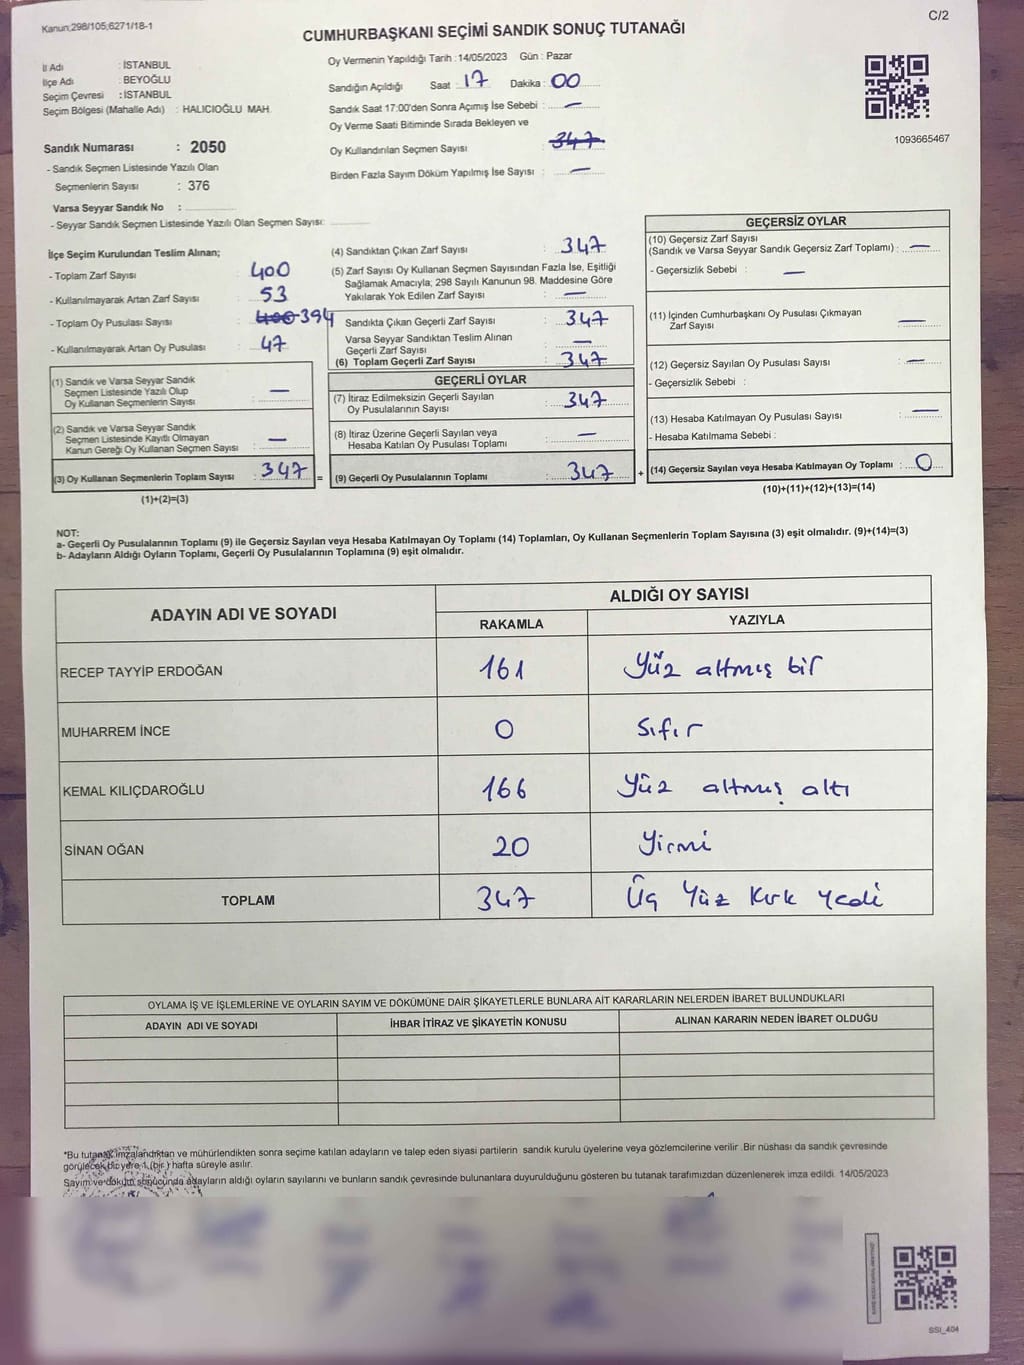 Kanun;298/105;6271/18-1
C/2
CUMHURBAŞKANI SEÇİMİ SANDIK SONUÇ TUTANAĞI
İl Adı : İSTANBUL
İlçe Adı : BEYOĞLU
Seçim Çevresi : İSTANBUL
Seçim Bölgesi (Mahalle Adı) : HALICIOĞLU MAH.
Sandık Numarası : 2050
- Sandık Seçmen Listesinde Yazılı Olan
Seçmenlerin Sayısı : 376
Varsa Seyyar Sandık No :
- Seyyar Sandık Seçmen Listesinde Yazılı Olan Seçmen Sayısı:
Oy Vermenin Yapıldığı Tarih : 14/05/2023 Gün : Pazar
Sandığın Açıldığı Saat : 17 Dakika : 00
Sandık Saat 17:00'den Sonra Açımış İse Sebebi : —
Oy Verme Saati Bitiminde Sırada Bekleyen ve
Oy Kullandırılan Seçmen Sayısı : 347
Birden Fazla Sayım Döküm Yapılmış İse Sayısı : —
1093665467
İlçe Seçim Kurulundan Teslim Alınan;
- Toplam Zarf Sayısı : 400
- Kullanılmayarak Artan Zarf Sayısı : 53
- Toplam Oy Pusulası Sayısı : 400 394
- Kullanılmayarak Artan Oy Pusulası : 47
(1) Sandık ve Varsa Seyyar Sandık
Seçmen Listesinde Yazılı Olup
Oy Kullanan Seçmenlerin Sayısı : —
(2) Sandık ve Varsa Seyyar Sandık
Seçmen Listesinde Kayıtlı Olmayan
Kanun Gereği Oy Kullanan Seçmen Sayısı : —
(3) Oy Kullanan Seçmenlerin Toplam Sayısı : 347 =
(1)+(2)=(3)
(4) Sandıktan Çıkan Zarf Sayısı : 347
(5) Zarf Sayısı Oy Kullanan Seçmen Sayısından Fazla İse, Eşitliği
Sağlamak Amacıyla; 298 Sayılı Kanunun 98. Maddesine Göre
Yakılarak Yok Edilen Zarf Sayısı : —
Sandıkta Çıkan Geçerli Zarf Sayısı : 347
Varsa Seyyar Sandıktan Teslim Alınan
Geçerli Zarf Sayısı : —
(6) Toplam Geçerli Zarf Sayısı : 347
GEÇERLİ OYLAR
(7) İtiraz Edilmeksizin Geçerli Sayılan
Oy Pusulalarının Sayısı : 347
(8) İtiraz Üzerine Geçerli Sayılan veya
Hesaba Katılan Oy Pusulası Toplamı : —
(9) Geçerli Oy Pusulalarının Toplamı : 347 +
GEÇERSİZ OYLAR
(10) Geçersiz Zarf Sayısı
(Sandık ve Varsa Seyyar Sandık Geçersiz Zarf Toplamı) : —
- Geçersizlik Sebebi : —
(11) İçinden Cumhurbaşkanı Oy Pusulası Çıkmayan
Zarf Sayısı : —
(12) Geçersiz Sayılan Oy Pusulası Sayısı : —
- Geçersizlik Sebebi :
(13) Hesaba Katılmayan Oy Pusulası Sayısı : —
- Hesaba Katılmama Sebebi :
(14) Geçersiz Sayılan veya Hesaba Katılmayan Oy Toplamı : 0
(10)+(11)+(12)+(13)=(14)
NOT:
a- Geçerli Oy Pusulalarının Toplamı (9) ile Geçersiz Sayılan veya Hesaba Katılmayan Oy Toplamı (14) Toplamları, Oy Kullanan Seçmenlerin Toplam Sayısına (3) eşit olmalıdır. (9)+(14)=(3)
b- Adayların Aldığı Oyların Toplamı, Geçerli Oy Pusulalarının Toplamına (9) eşit olmalıdır.
ADAYIN ADI VE SOYADI ALDIĞI OY SAYISI
RAKAMLA YAZIYLA
RECEP TAYYİP ERDOĞAN 161 Yüz altmış bir
MUHARREM İNCE 0 Sıfır
KEMAL KILIÇDAROĞLU 166 Yüz altmış altı
SİNAN OĞAN 20 Yirmi
TOPLAM 347 Üç Yüz Kırk Yedi
OYLAMA İŞ VE İŞLEMLERİNE VE OYLARIN SAYIM VE DÖKÜMÜNE DAİR ŞİKAYETLERLE BUNLARA AİT KARARLARIN NELERDEN İBARET BULUNDUKLARI
ADAYIN ADI VE SOYADI İHBAR İTİRAZ VE ŞİKAYETİN KONUSU ALINAN KARARIN NEDEN İBARET OLDUĞU
*Bu tutanağ imzalandıktan ve mühürlendikten sonra seçime katılan adayların ve talep eden siyasi partilerin sandık kurulu üyelerine veya gözlemcilerine verilir .Bir nüshası da sandık çevresinde
görülecek bir yere 1 (bir ) hafta süreyle asılır.
Sayım ve döküm sonucunda adayların aldığı oyların sayılarını ve bunların sandık çevresinde bulunanlara duyurulduğunu gösteren bu tutanak tarafımızdan düzenlenerek imza edildi. 14/05/2023
SSI_404